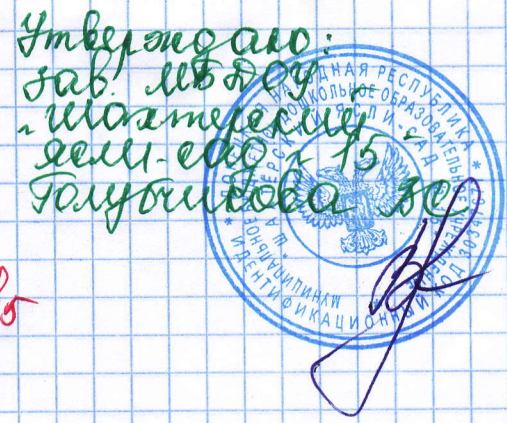 Утверждаю:
зав. МБДОУ
„Шахтерский
ясли-сад № 15"
Голубчикова ВС
НАРОДНАЯ РЕСПУБЛИКА *
ДОШКОЛЬНОЕ ОБРАЗОВАТЕЛЬНОЕ
ЯСЛИ-САД
МУНИЦИПАЛЬНОЕ
ИДЕНТИФИКАЦИОННЫЙ КОД